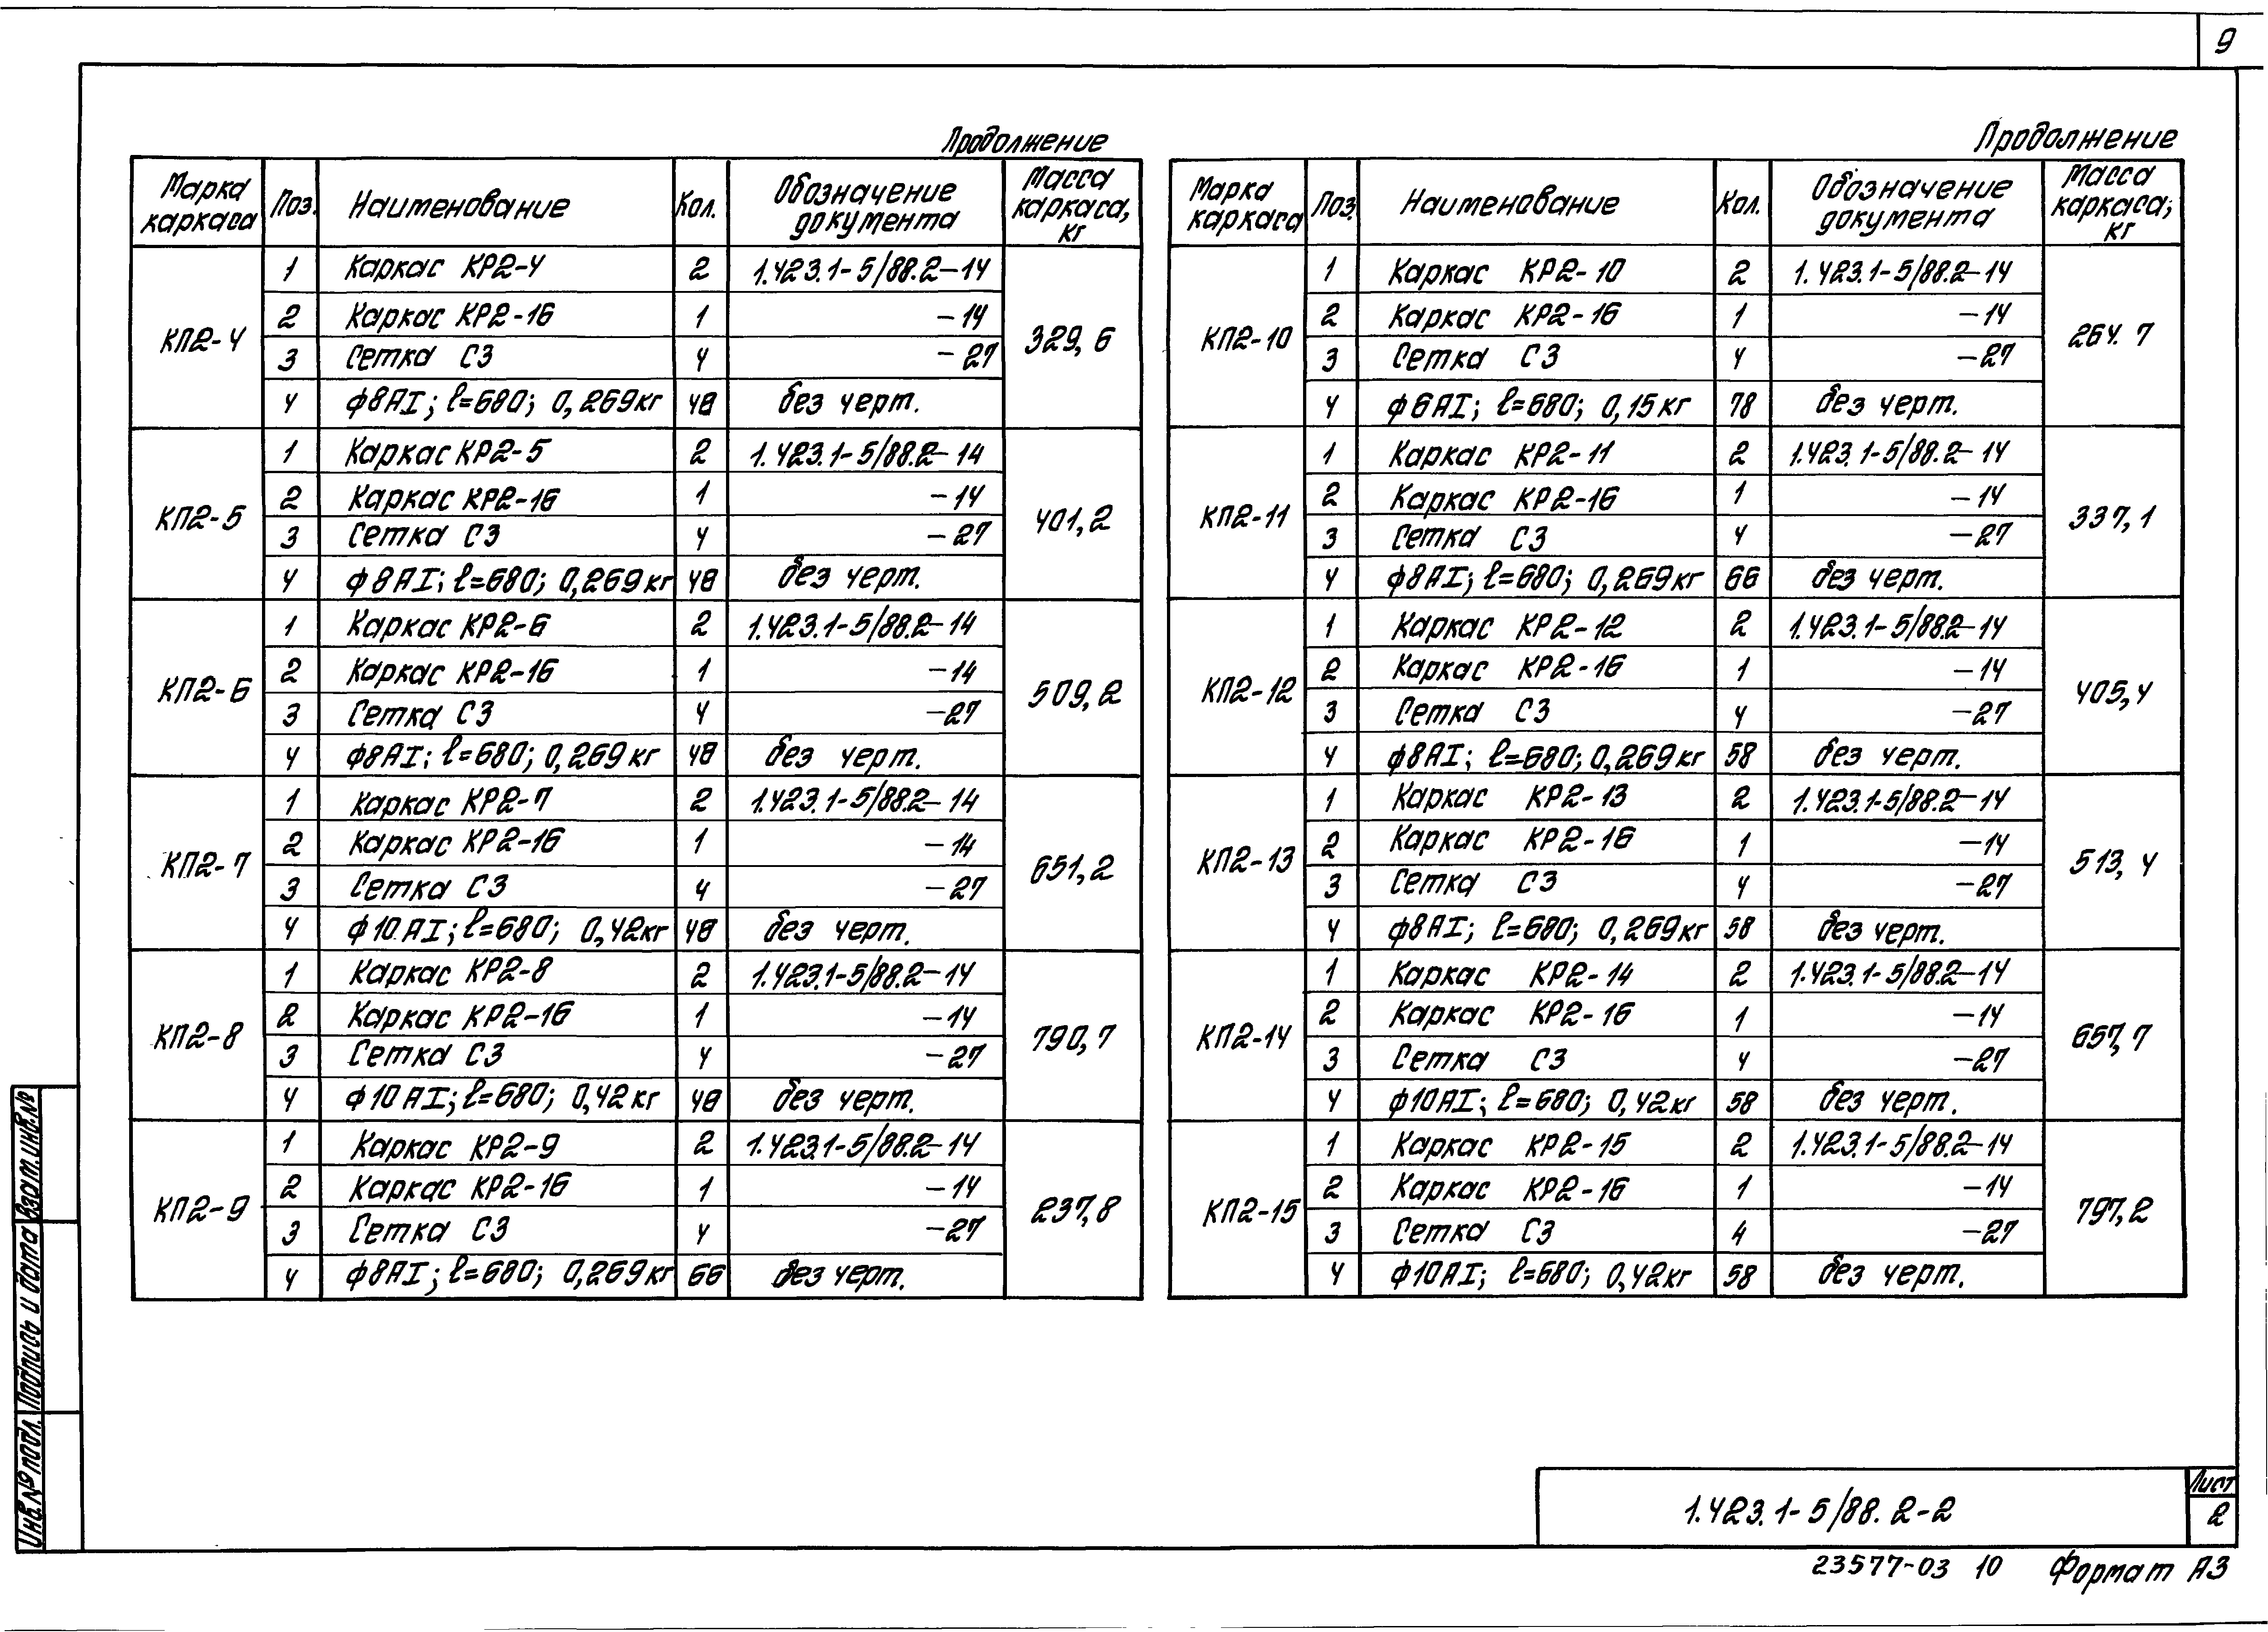 9
Продолжение
Марка каркаса Поз. Наименование Кол. Обозначение документа Масса каркаса, кг
КП2-4 329,6
1 Каркас КР2-4 2 1.423.1-5/88.2-14
2 Каркас КР2-16 1 -14
3 Сетка С3 4 -27
4 ф8АI; ℓ=680; 0,269кг 48 без черт.
КП2-5 401,2
1 Каркас КР2-5 2 1.423.1-5/88.2-14
2 Каркас КР2-16 1 -14
3 Сетка С3 4 -27
4 ф8АI; ℓ=680; 0,269кг 48 без черт.
КП2-6 509,2
1 Каркас КР2-6 2 1.423.1-5/88.2-14
2 Каркас КР2-16 1 -14
3 Сетка С3 4 -27
4 ф8АI; ℓ=680; 0,269кг 48 без черт.
КП2-7 651,2
1 Каркас КР2-7 2 1.423.1-5/88.2-14
2 Каркас КР2-16 1 -14
3 Сетка С3 4 -27
4 ф10АI; ℓ=680; 0,42кг 48 без черт.
КП2-8 790,7
1 Каркас КР2-8 2 1.423.1-5/88.2-14
2 Каркас КР2-16 1 -14
3 Сетка С3 4 -27
4 ф10АI; ℓ=680; 0,42кг 48 без черт.
КП2-9 237,8
1 Каркас КР2-9 2 1.423.1-5/88.2-14
2 Каркас КР2-16 1 -14
3 Сетка С3 4 -27
4 ф8АI; ℓ=680; 0,269кг 66 без черт.
Продолжение
Марка каркаса Поз. Наименование Кол. Обозначение документа Масса каркаса, кг
КП2-10 264.7
1 Каркас КР2-10 2 1.423.1-5/88.2-14
2 Каркас КР2-16 1 -14
3 Сетка С3 4 -27
4 ф6АI; ℓ=680; 0,15кг 78 без черт.
КП2-11 337,1
1 Каркас КР2-11 2 1.423.1-5/88.2-14
2 Каркас КР2-16 1 -14
3 Сетка С3 4 -27
4 ф8АI; ℓ=680; 0,269кг 66 без черт.
КП2-12 405,4
1 Каркас КР2-12 2 1.423.1-5/88.2-14
2 Каркас КР2-16 1 -14
3 Сетка С3 4 -27
4 ф8АI; ℓ=680; 0,269кг 58 без черт.
КП2-13 513,4
1 Каркас КР2-13 2 1.423.1-5/88.2-14
2 Каркас КР2-16 1 -14
3 Сетка С3 4 -27
4 ф8АI; ℓ=680; 0,269кг 58 без черт.
КП2-14 657,7
1 Каркас КР2-14 2 1.423.1-5/88.2-14
2 Каркас КР2-16 1 -14
3 Сетка С3 4 -27
4 ф10АI; ℓ=680; 0,42кг 58 без черт.
КП2-15 797,2
1 Каркас КР2-15 2 1.423.1-5/88.2-14
2 Каркас КР2-16 1 -14
3 Сетка С3 4 -27
4 ф10АI; ℓ=680; 0,42кг 58 без черт.
Инв.№ подл. Подпись и дата Взам.инв.№
1.423.1-5/88.2-2
Лист
2
23577-03 10 Формат А3